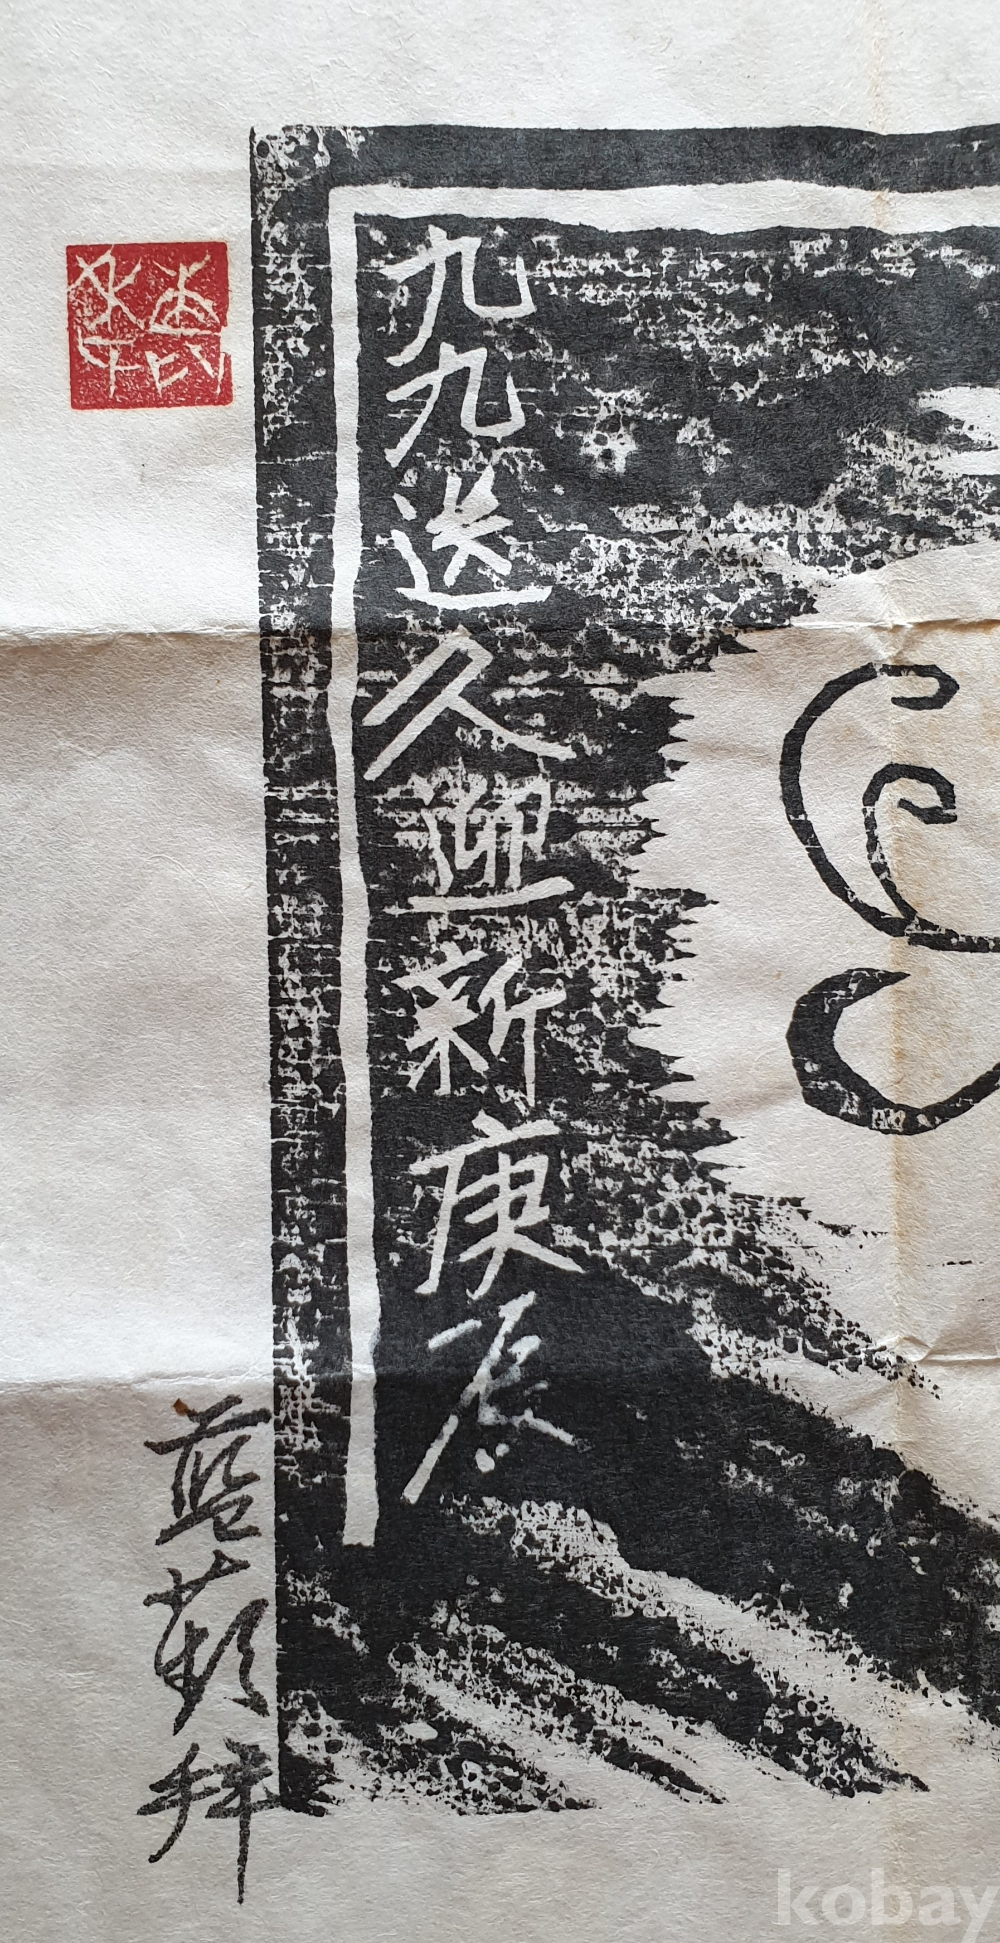 九九送久迎新庚辰
蓝
拜
kobay